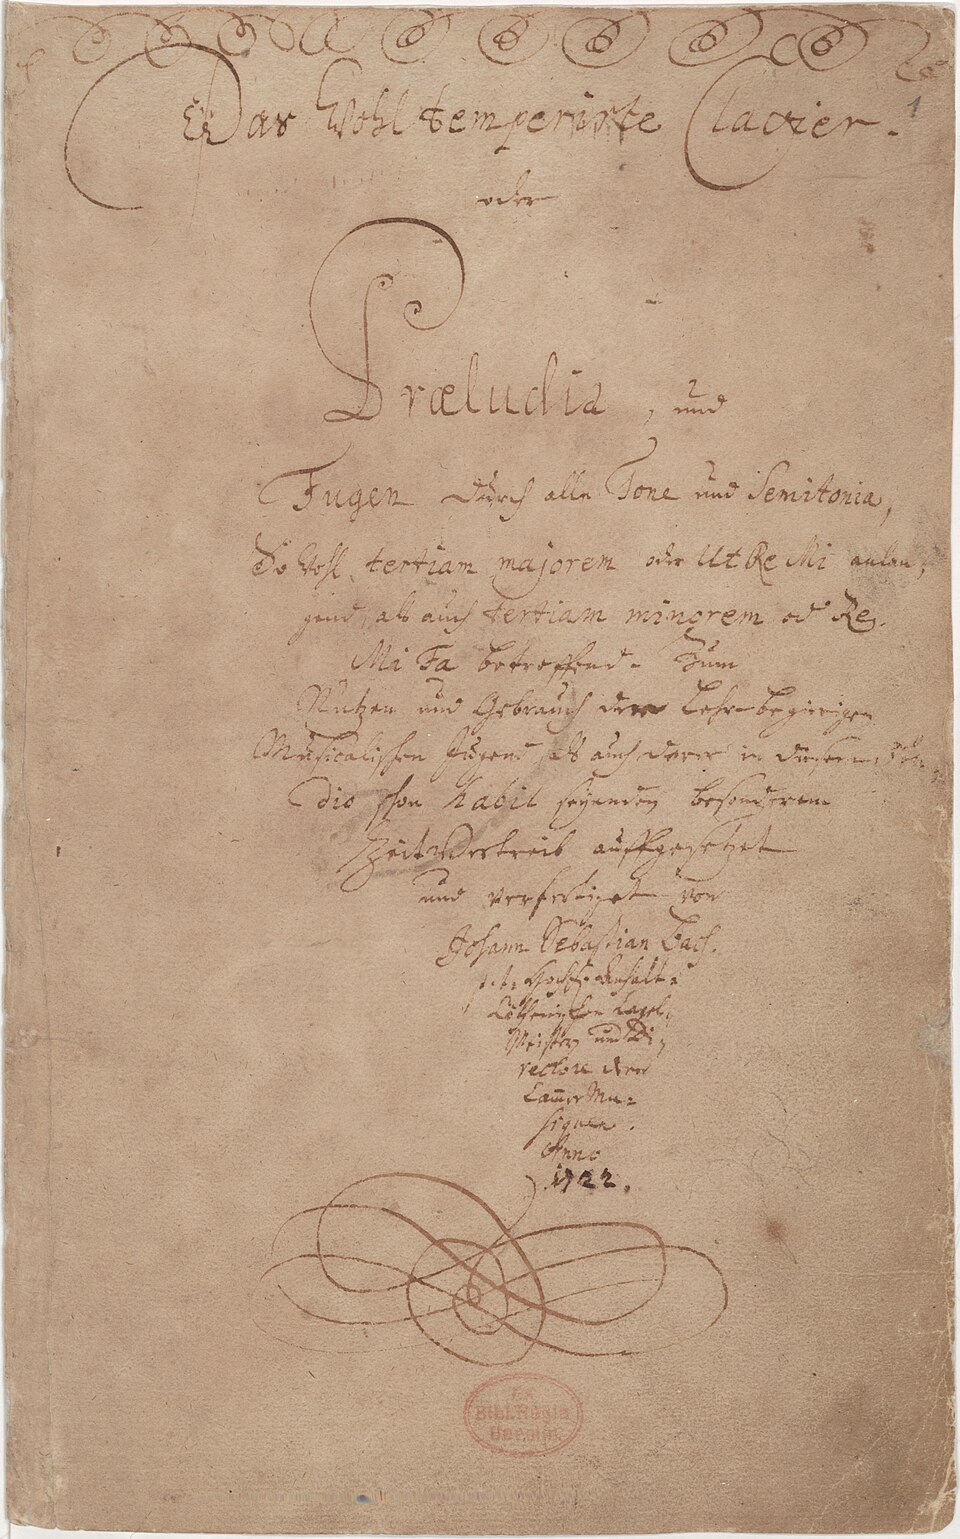 Das Wohltemperirte Clavier.
oder
Præludia, und
Fugen durch alle Tone und Semitonia,
So wohl tertiam majorem oder Ut Re Mi anlan,
gend, als auch tertiam minorem od Re
Mi Fa betreffend. Zum
Nutzen und Gebrauch der Lehr-begierigen
Musicalischen Jugend, als auch derer in diesem stu-
dio schon habil seyenden besonderem
Zeit Vertreib auffgesetzet
und verfertiget von
Johann Sebastian Bach.
p. t: HochF. Anhalt:
Cöthenischen Capel-
Meistern und Di,
rectore derer
Cam̄er Mu=
siquen.
Anno
1722.
1
Ex
Bibl. Regia
Berolin.